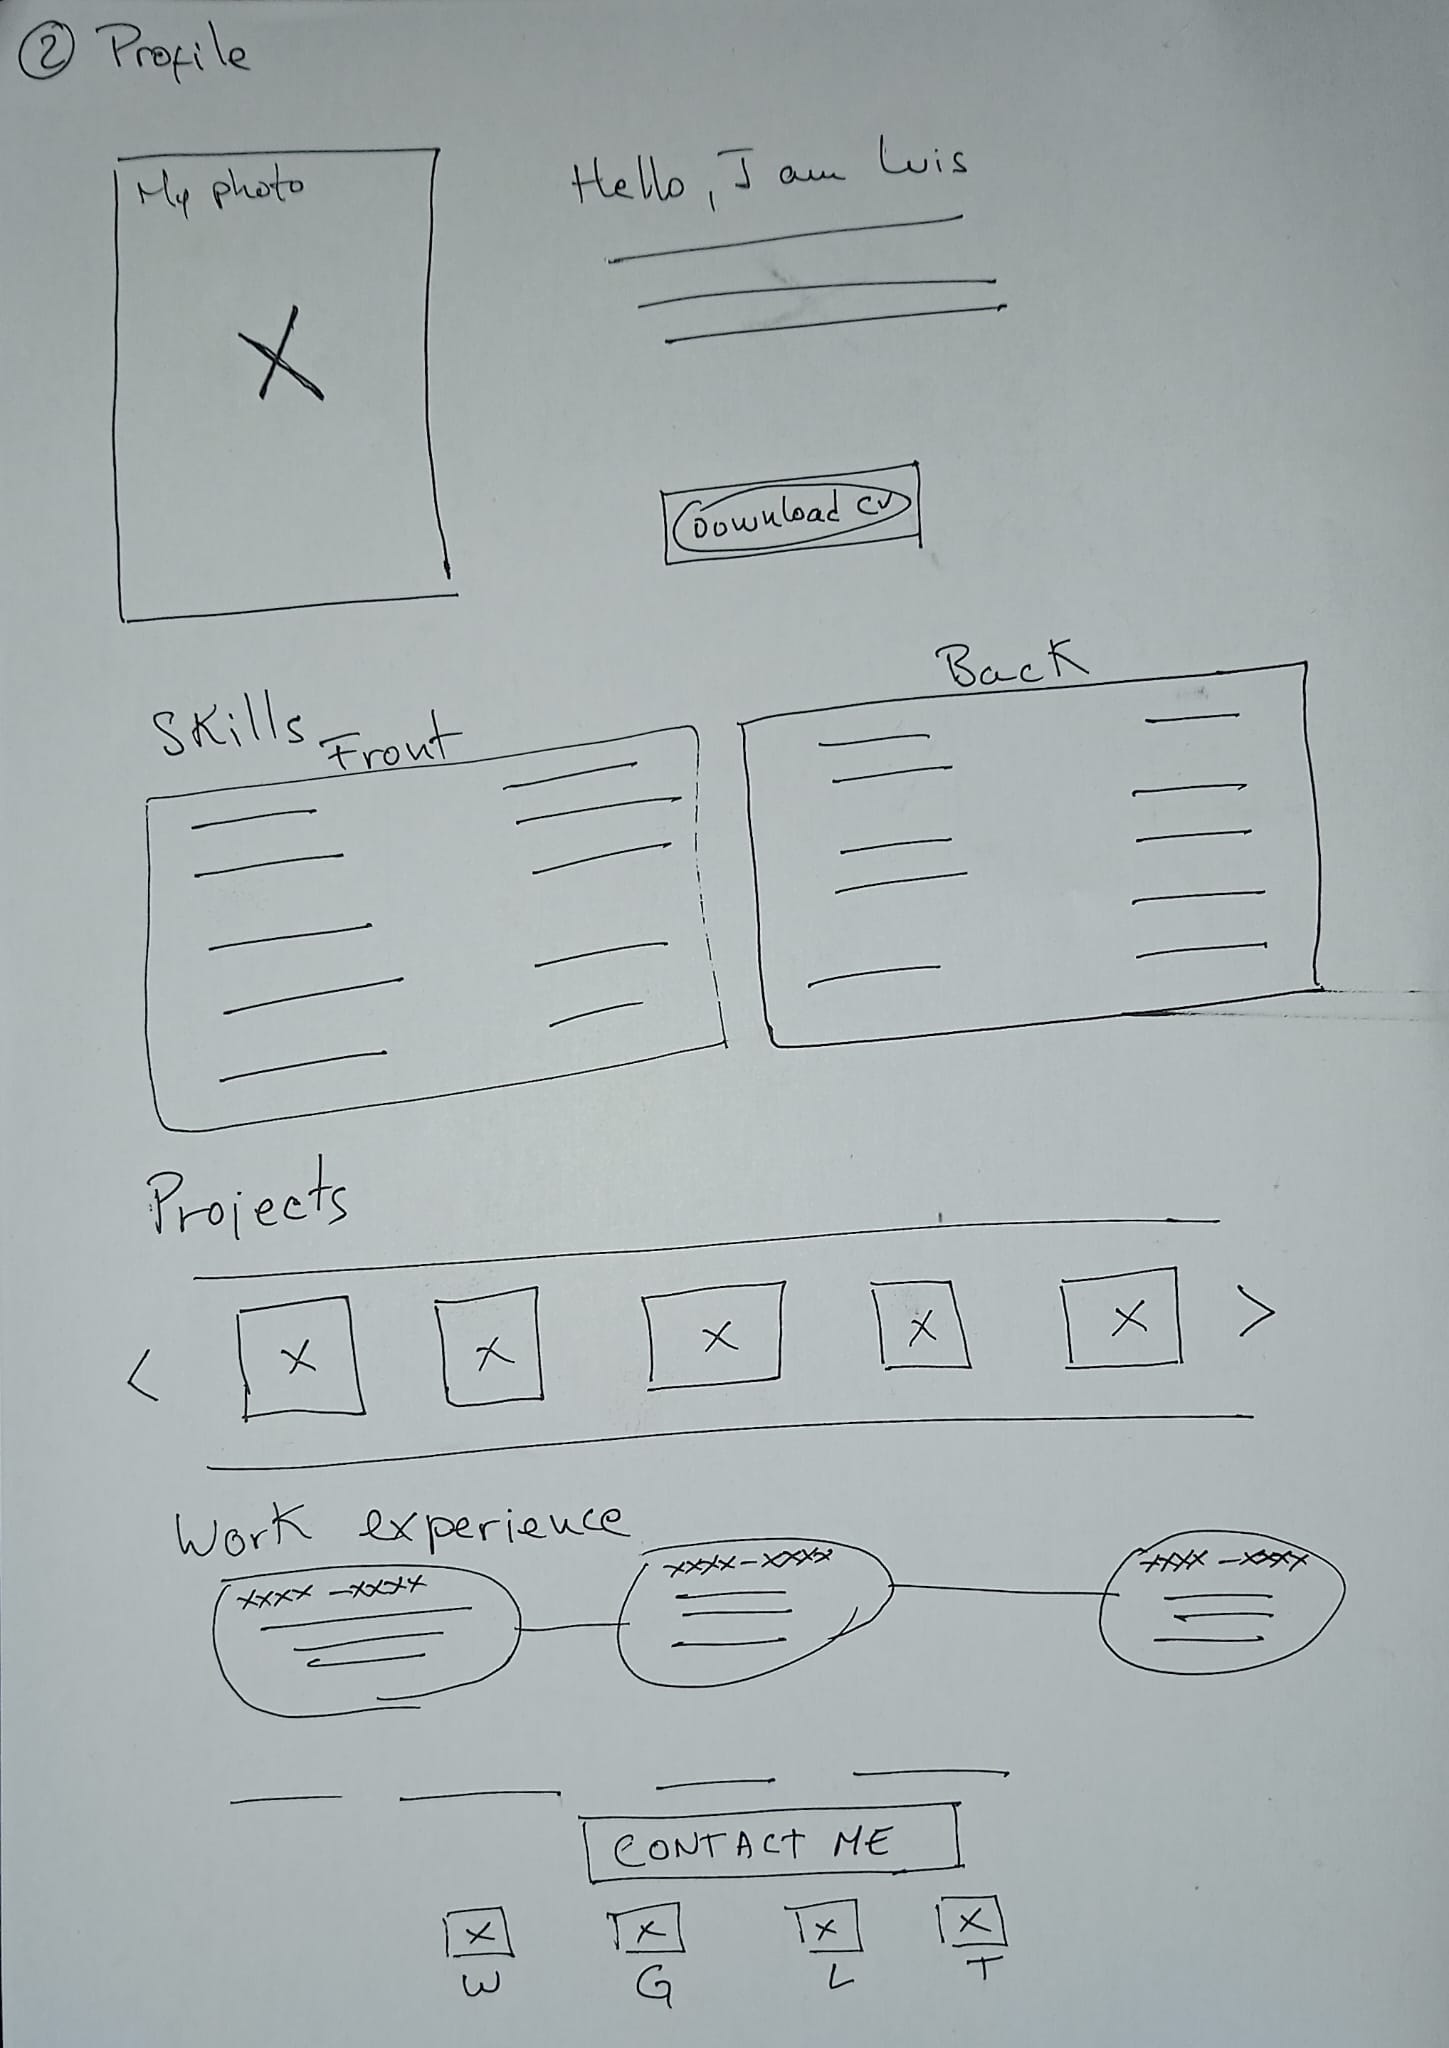 ② Profile
My photo
X
Hello, I am Luis
Download CV
Skills
Front
Back
Projects
< X X X X X >
Work experience
xxxx - xxxx
xxxx - xxxx
xxxx - xxxx
CONTACT ME
X X X X
W G L T